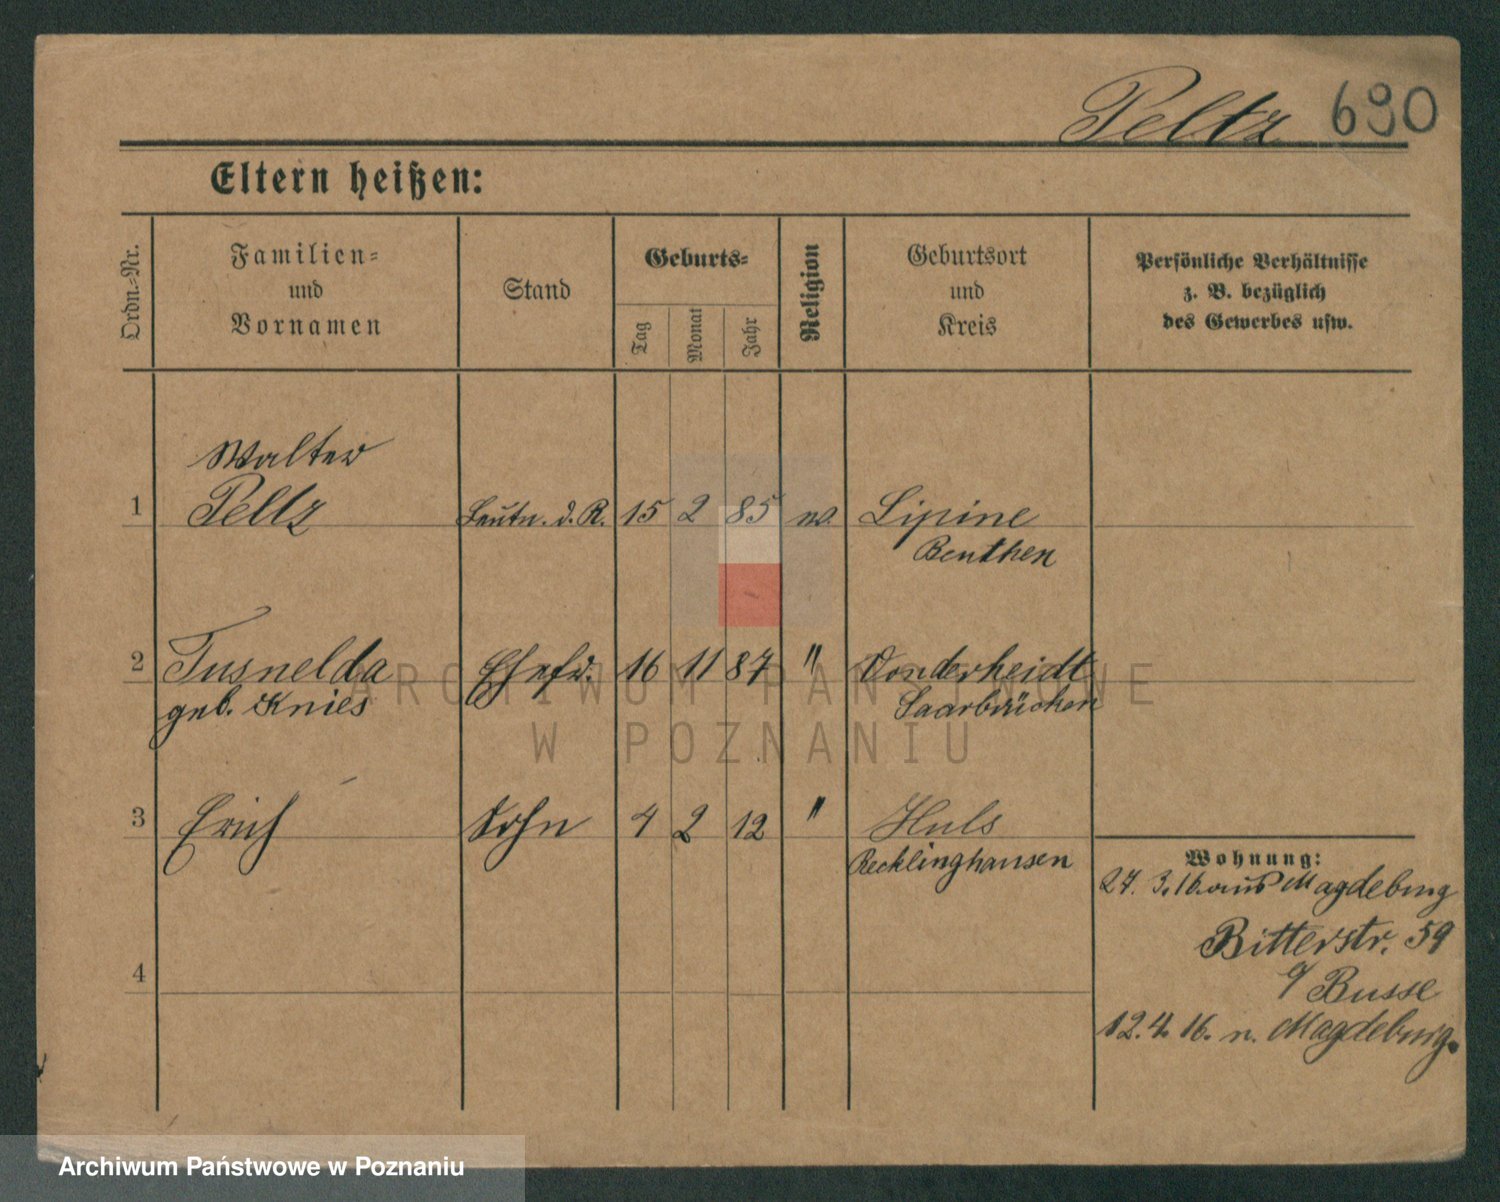 Peltz 690
Eltern heißen:
Ordn.-Nr.
Familien-
und
Vornamen
Stand
Geburts-
Tag
Monat
Jahr
Religion
Geburtsort
und
Kreis
Persönliche Verhältnisse
z. B. bezüglich
des Gewerbes usw.
Walter
1 Peltz Leutn. d. R. 15 2 85 ev. Lipine
Beuthen
2 Tusnelda Ehefr. 16 11 87 " Vonderheidt
geb. Knies Saarbrücken
3 Erich Sohn 4 2 12 " Huls
Recklinghausen
4
Wohnung:
27. 3. 16. aus Magdeburg
Bitterstr. 59
Busse
12. 4. 16. n. Magdeburg.
ARCHIWUM PAŃSTWOWE
W POZNANIU
Archiwum Państwowe w Poznaniu